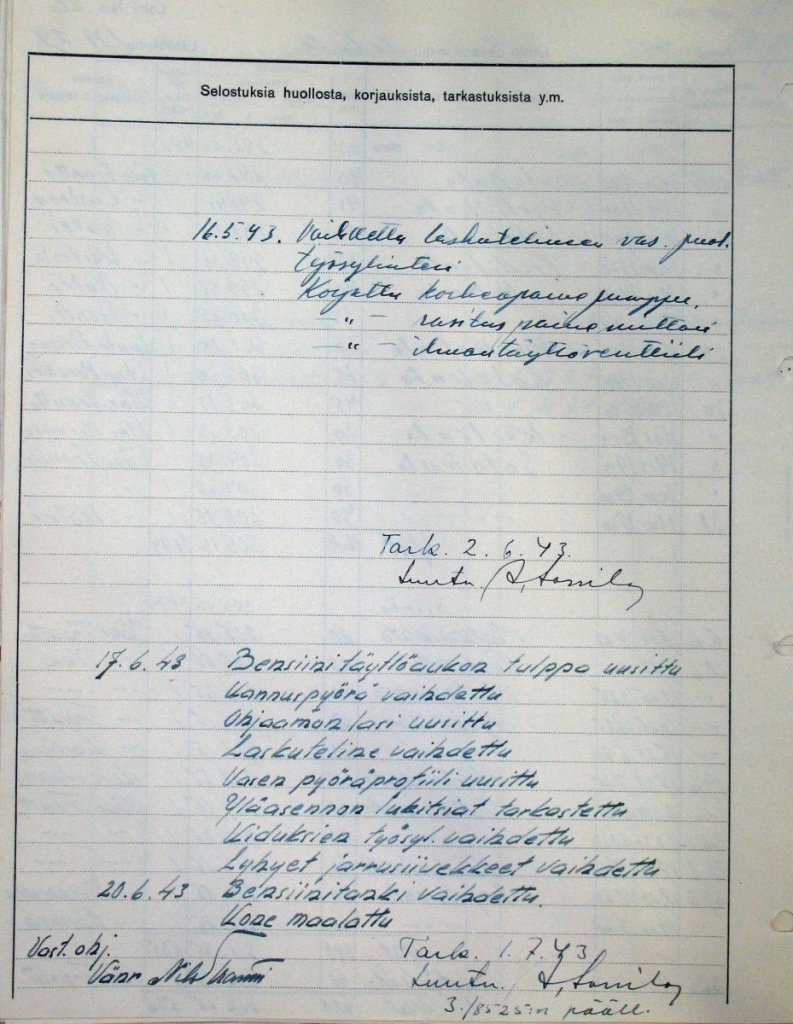 Selostuksia huollosta, korjauksista, tarkastuksista y.m.
16.5.43. Vaihdettu laskutelineen vas. puol.
työsylinteri
Korjattu korkeapaine pumppu,
— " — rasitus paine mittari
— " — ilmantäyttöventtiili
Tark. 2.6.43.
Luutn.
17.6.43 Bensiinitäyttöaukon tulppa uusittu
Kannuspyörä vaihdettu
Ohjaamon lasi uusittu
Laskuteline vaihdettu
Vasen pyöräprofiili uusittu
Yläasennon lukitsiat tarkastettu
Kiduksien työsyl. vaihdettu
Lyhyet jarrusiivekkeet vaihdettu
20.6.43 Bensiinitanki vaihdettu.
Kone maalattu
Vast. ohj.
Tark. 1.7.43
Vänr
Luutn.
3./8525:n pääll.